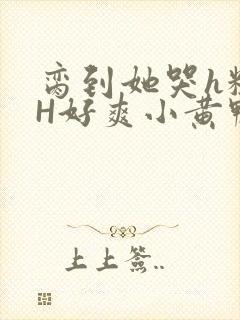 脔到她哭h
H好爽小黄鸭
上上签..